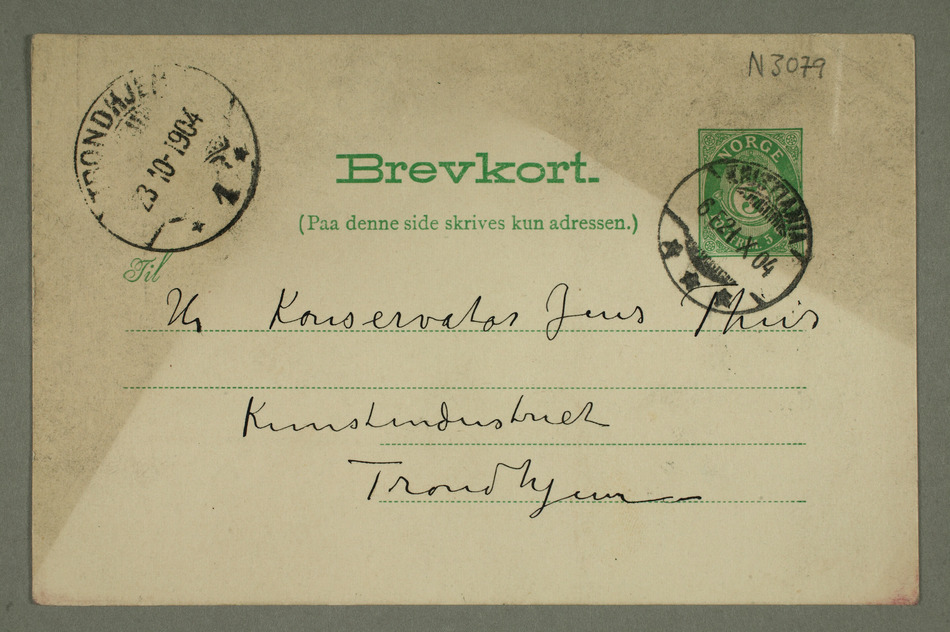 N3079
TRONDHJEM
23-10-1904
1
NORGE
5
KRISTIANIA
21 X 04
Brevkort.
(Paa denne side skrives kun adressen.)
Til
Hr Konservator Jens Thiis
Kunstindustriet
Trondhjem